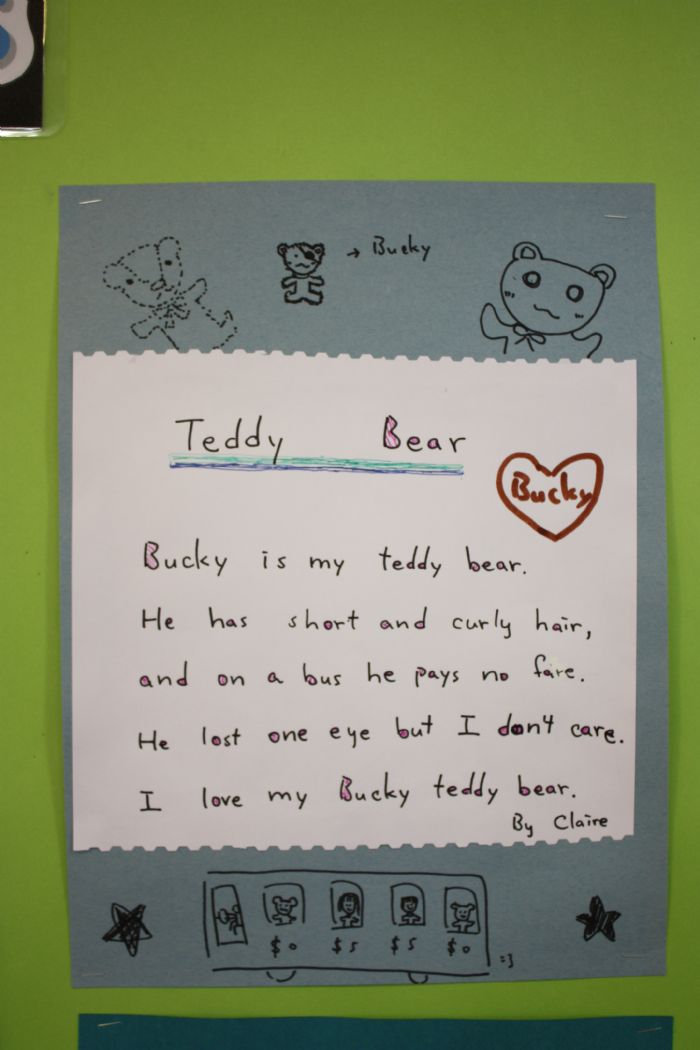 → Bucky
Teddy Bear
Bucky
Bucky is my teddy bear.
He has short and curly hair,
and on a bus he pays no fare.
He lost one eye but I don't care.
I love my Bucky teddy bear.
By Claire
$0 $5 $5 $0
:3